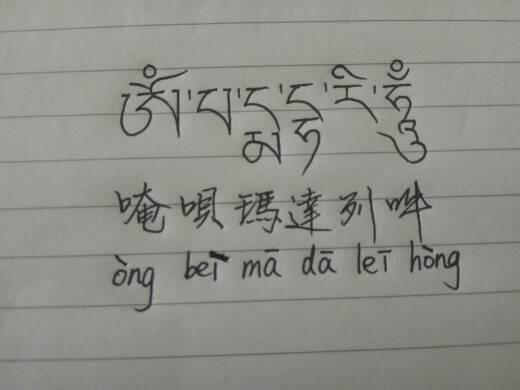 ཨོཾ་པ་དྨ་དྷ་རི་ཧཱུྃ
唵唄瑪達列吽
òng beī mā dā leī hòng